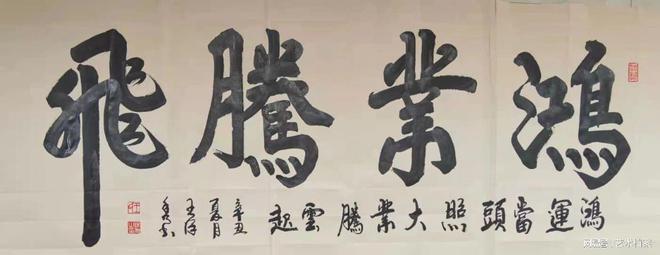 鴻業騰飛
鴻運當頭照大業騰雲起
辛丑
夏月
王
搜狐号@艺术档案